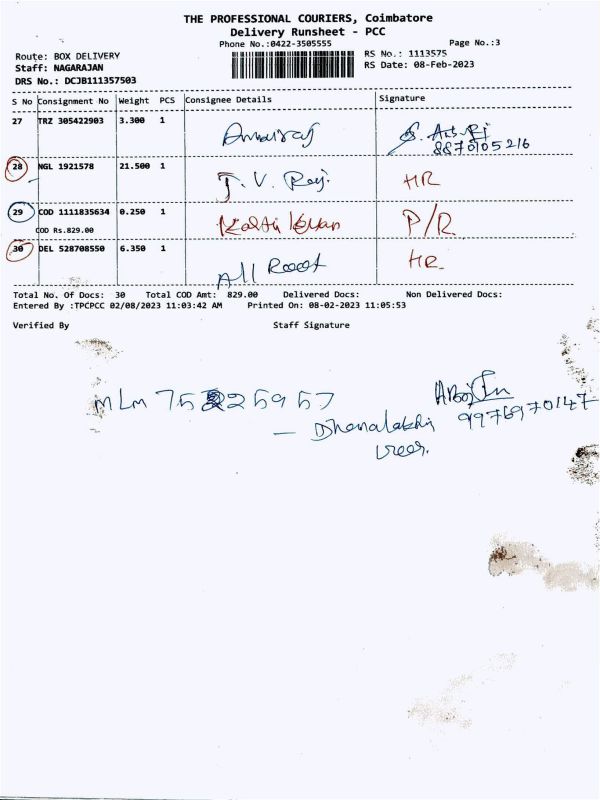 THE PROFESSIONAL COURIERS, Coimbatore
Delivery Runsheet - PCC
Phone No.:0422-3505555
Page No.:3
Route: BOX DELIVERY
RS No.: 1113575
Staff: NAGARAJAN
RS Date: 08-Feb-2023
DRS No.: DCJB111357503
S No Consignment No Weight PCS Consignee Details Signature
27 TRZ 305422903 3.300 1
8870105216
28 NGL 1921578 21.500 1 T. V. Raj. HR
29 COD 1111835634 0.250 1 P/R
COD Rs.829.00
30 DEL 528708550 6.350 1 All HR
Total No. Of Docs: 30 Total COD Amt: 829.00 Delivered Docs: Non Delivered Docs:
Entered By :TPCPCC 02/08/2023 11:03:42 AM Printed On: 08-02-2023 11:05:53
Verified By Staff Signature
MLM 75 25957
9976970147